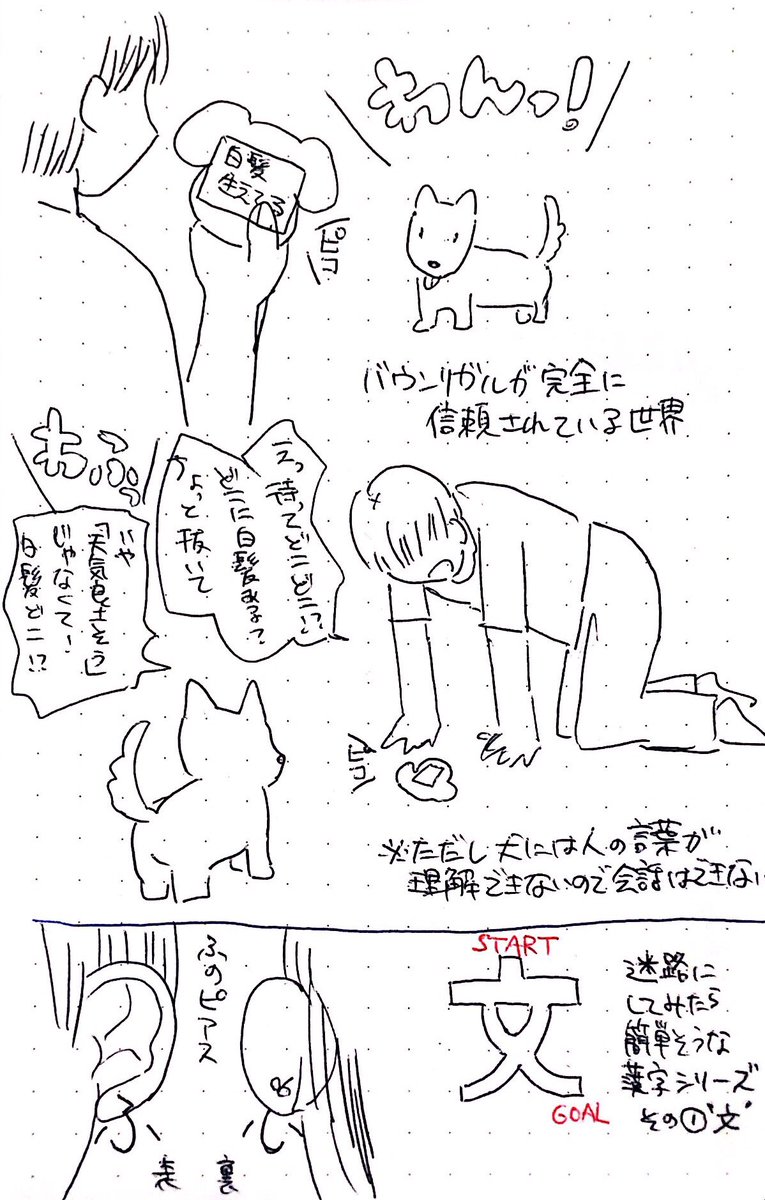 わんっ!
白髪
生えてる
ピコ
バウンリガルが完全に
信頼されている世界
わふっ
えっ待ってどこどこ!?
どこに白髪ある?
ちょっと抜いて
いや
「天気良さそう」
じゃなくて!
白髪どこ!?
ピコ
※ただし犬には人の言葉が
理解できないので会話はできない
ふのピアス
表
裏
START
文
GOAL
迷路に
してみたら
簡単そうな
漢字シリーズ
その①"文"